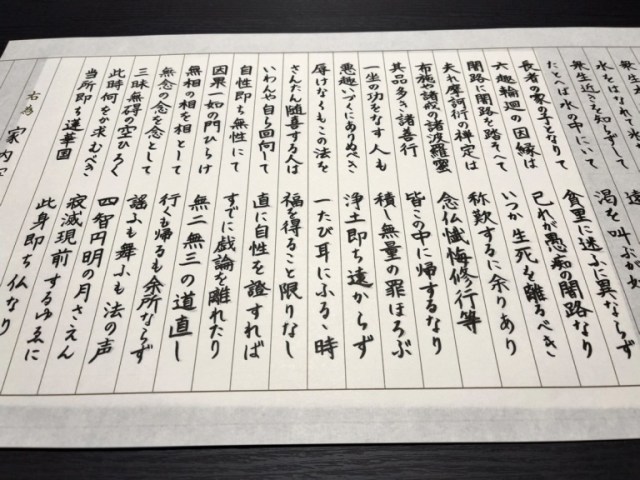 衆生本
水をはなれて氷な
衆生近きを知らずして 遠
たとへば水の中にいて 渇を叫ぶが如
長者の家の子となりて 貧里に迷ふに異ならず
六趣輪廻の因縁は 己れが愚痴の闇路なり
闇路に闇路を踏そへて いつか生死を離るべき
夫れ摩訶衍の禅定は 称歎するに余りあり
布施や諸戒の諸波羅蜜 念仏懺悔修行等
其品多き諸善行 皆この中に帰するなり
一坐の功をなす人も 積し無量の罪ほろぶ
悪趣いづくにありぬべき 浄土即ち遠からず
辱けなくもこの法を 一たび耳にふるゝ時
さんたん随喜する人は 福を得ること限りなし
いわんや自ら回向して 直に自性を證すれば
自性即ち無性にて すでに戯論を離れたり
因果一如の門ひらけ 無二無三の道直し
無相の相を相として 行くも帰るも余所ならず
無念の念を念として 謡ふも舞ふも法の声
三昧無碍の空ひろく 四智円明の月さえん
此時何をか求むべき 寂滅現前するゆゑに
当所即ち蓮華国 此身即ち仏なり
右為 家内